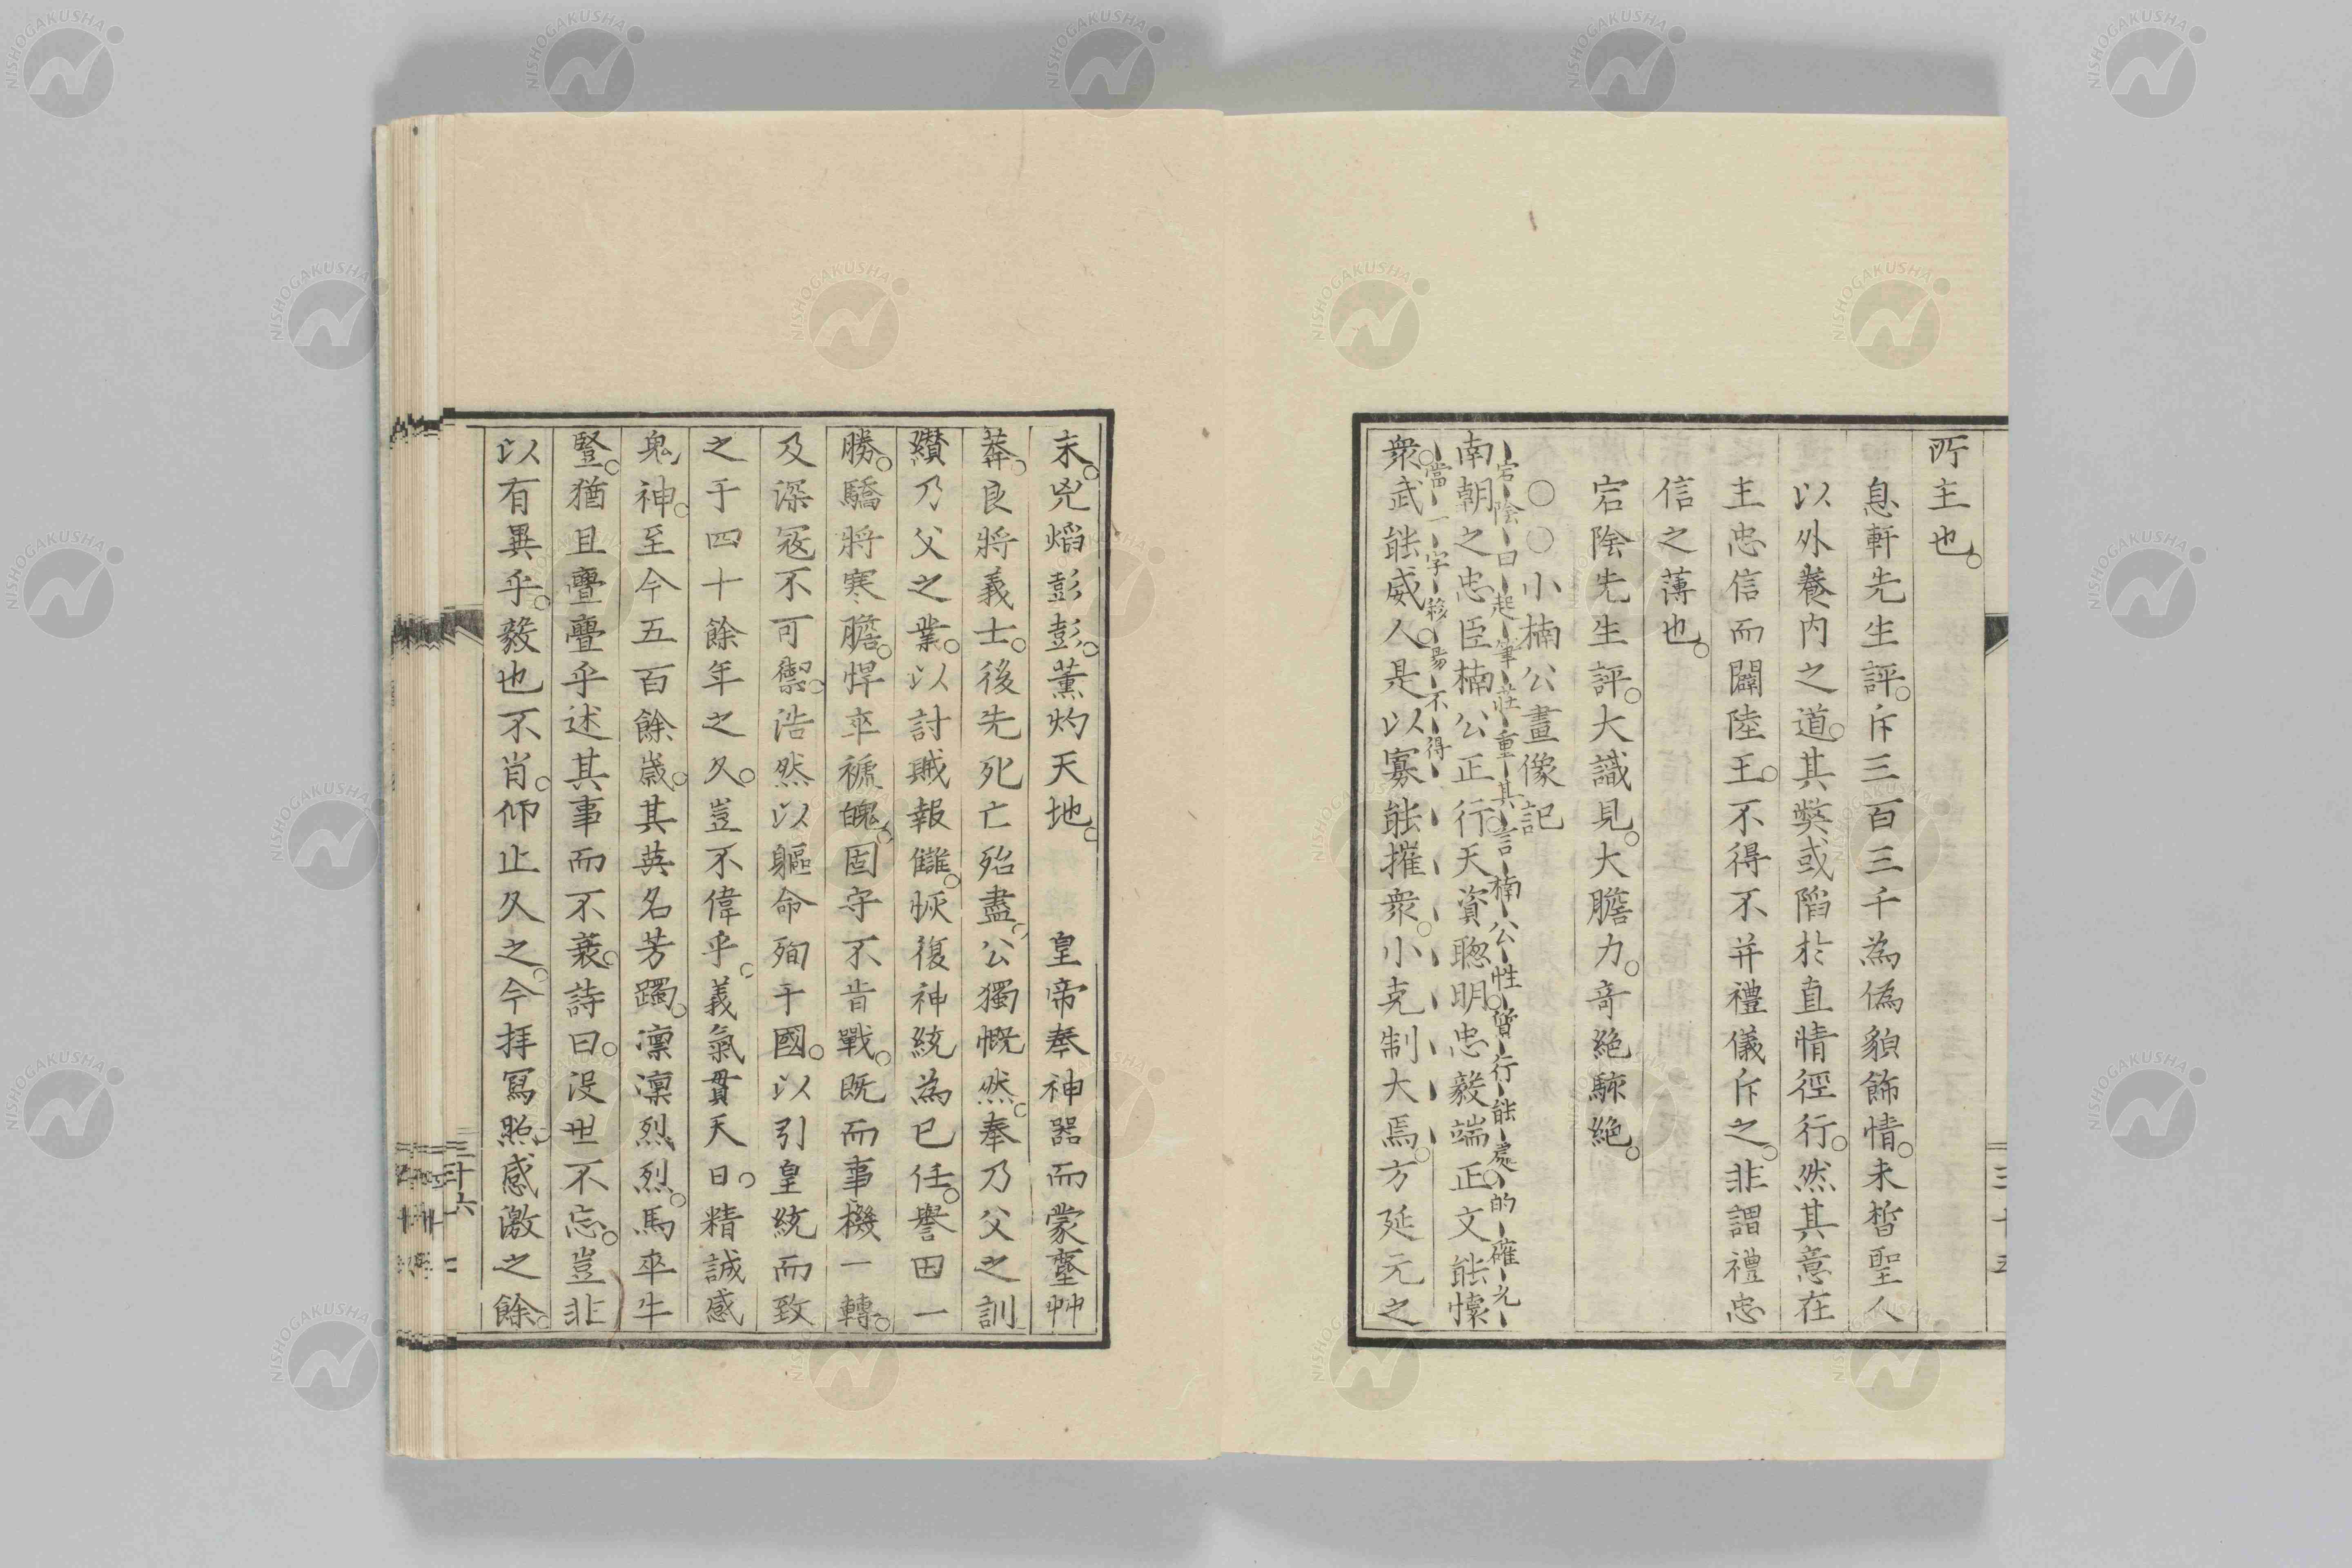 所主也。
息軒先生評。斥三百三千為偽貌飾情。未晳聖人
以外養内之道。其獘或陷於直情徑行。然其意在
主忠信而闢陸王。不得不并禮儀斥之。非謂禮忠
信之薄也。
宕陰先生評。大識見。大膽力。奇絶駭絶。
○○小楠公畫像記
宕陰曰起筆莊重其言楠公性質行能處的確允
南朝之忠臣楠公正行。天資聰明。忠毅端正。文能懷
當一字移易不得
衆。武能威人。是以寡能摧衆。小克制大焉。方延元之
三十五
末。兇焰彭彭。薰灼天地。皇帝奉神器而蒙塵艸
莽。良將義士。後先死亡殆盡。公獨慨然。奉乃父之訓
纘乃父之業。以討賊報讎。恢復神統為已任。譽田一
勝。驕將寒膽。悍卒褫魄。固守不肯戰。既而事機一轉。
及深寇不可禦。浩然以軀命殉于國。以引皇統而致
之于四十餘年之久。豈不偉乎。義氣貫天日。精誠感
鬼神。至今五百餘歳。其英名芳躅。凛凛烈烈。馬卒牛
豎。猶且亹亹乎述其事而不衰。詩曰。沒世不忘。豈非
以有異乎。毅也不肖。仰止久之。今拝冩照。感激之餘。
三十六
NISHOGAKUSHA